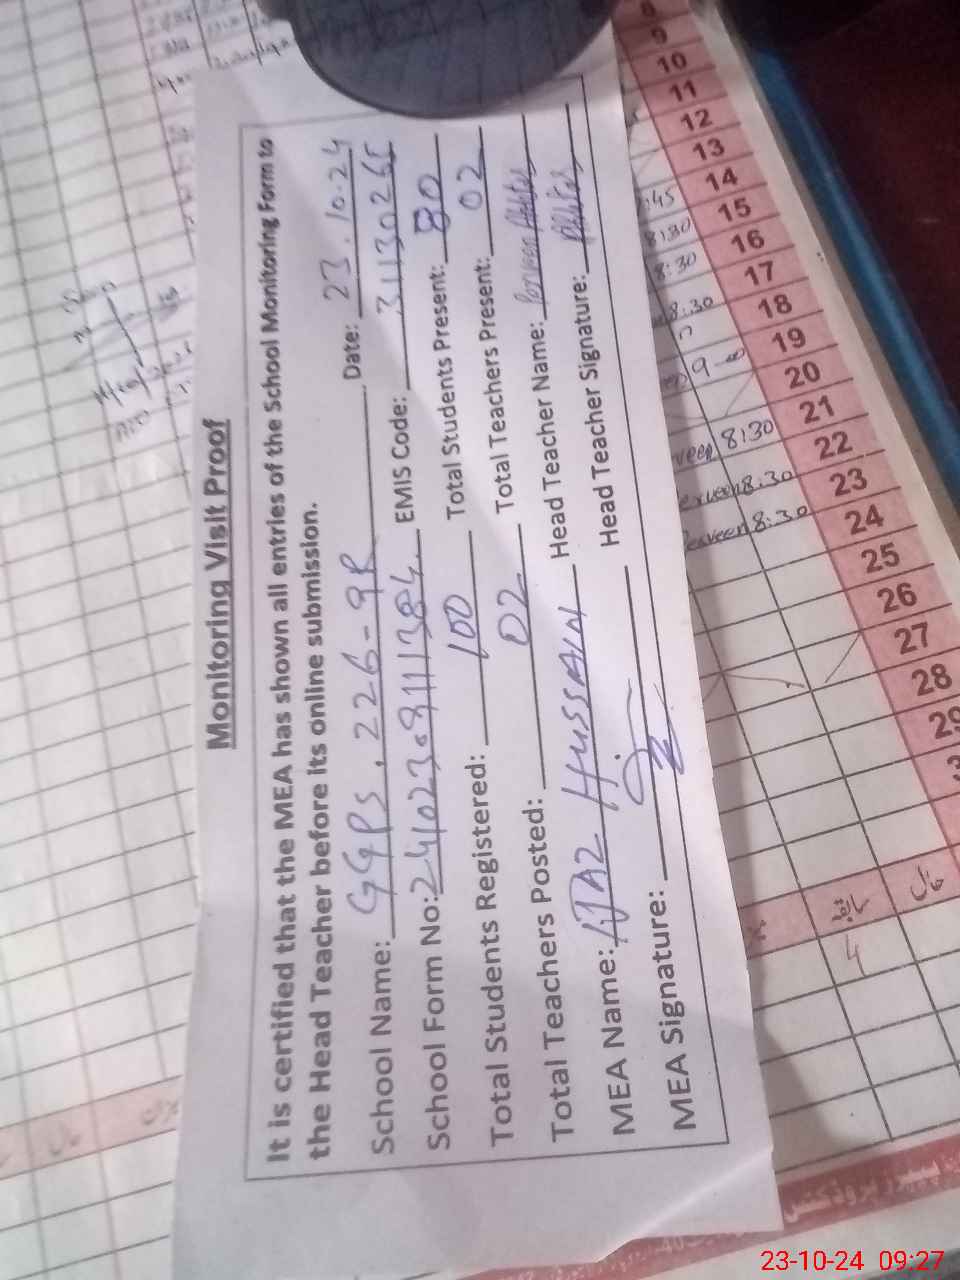 Monitoring Visit Proof
It is certified that the MEA has shown all entries of the School Monitoring Form to
the Head Teacher before its online submission.
School Name: GGPS, 226-9R Date: 23.10.24
School Form No: EMIS Code: 31130265
Total Students Registered: 100 Total Students Present: 80
Total Teachers Posted: 02 Total Teachers Present: 02
MEA Name: AIJAZ HUSSAIN Head Teacher Name: Perveen Akhter
MEA Signature: Head Teacher Signature:
8
9
10
11
12
13
14 :45
15 8:30
16 8:30
17
18 8:30
19
20 9-00
21
22 veen 8:30
23 erveen 8:30
24 Perveen 8:30
25
26
27
28
29
سابقہ
حال
4
میزان
حال
23-10-24 09:27